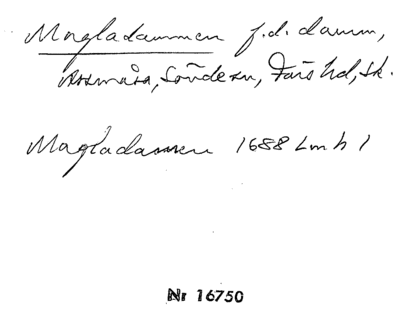 Magladammen f.d. damm,
Assmåsa, Sövde sn, Färs hd, Sk.
Magladamen 1688 Lm h 1
Nr 16750